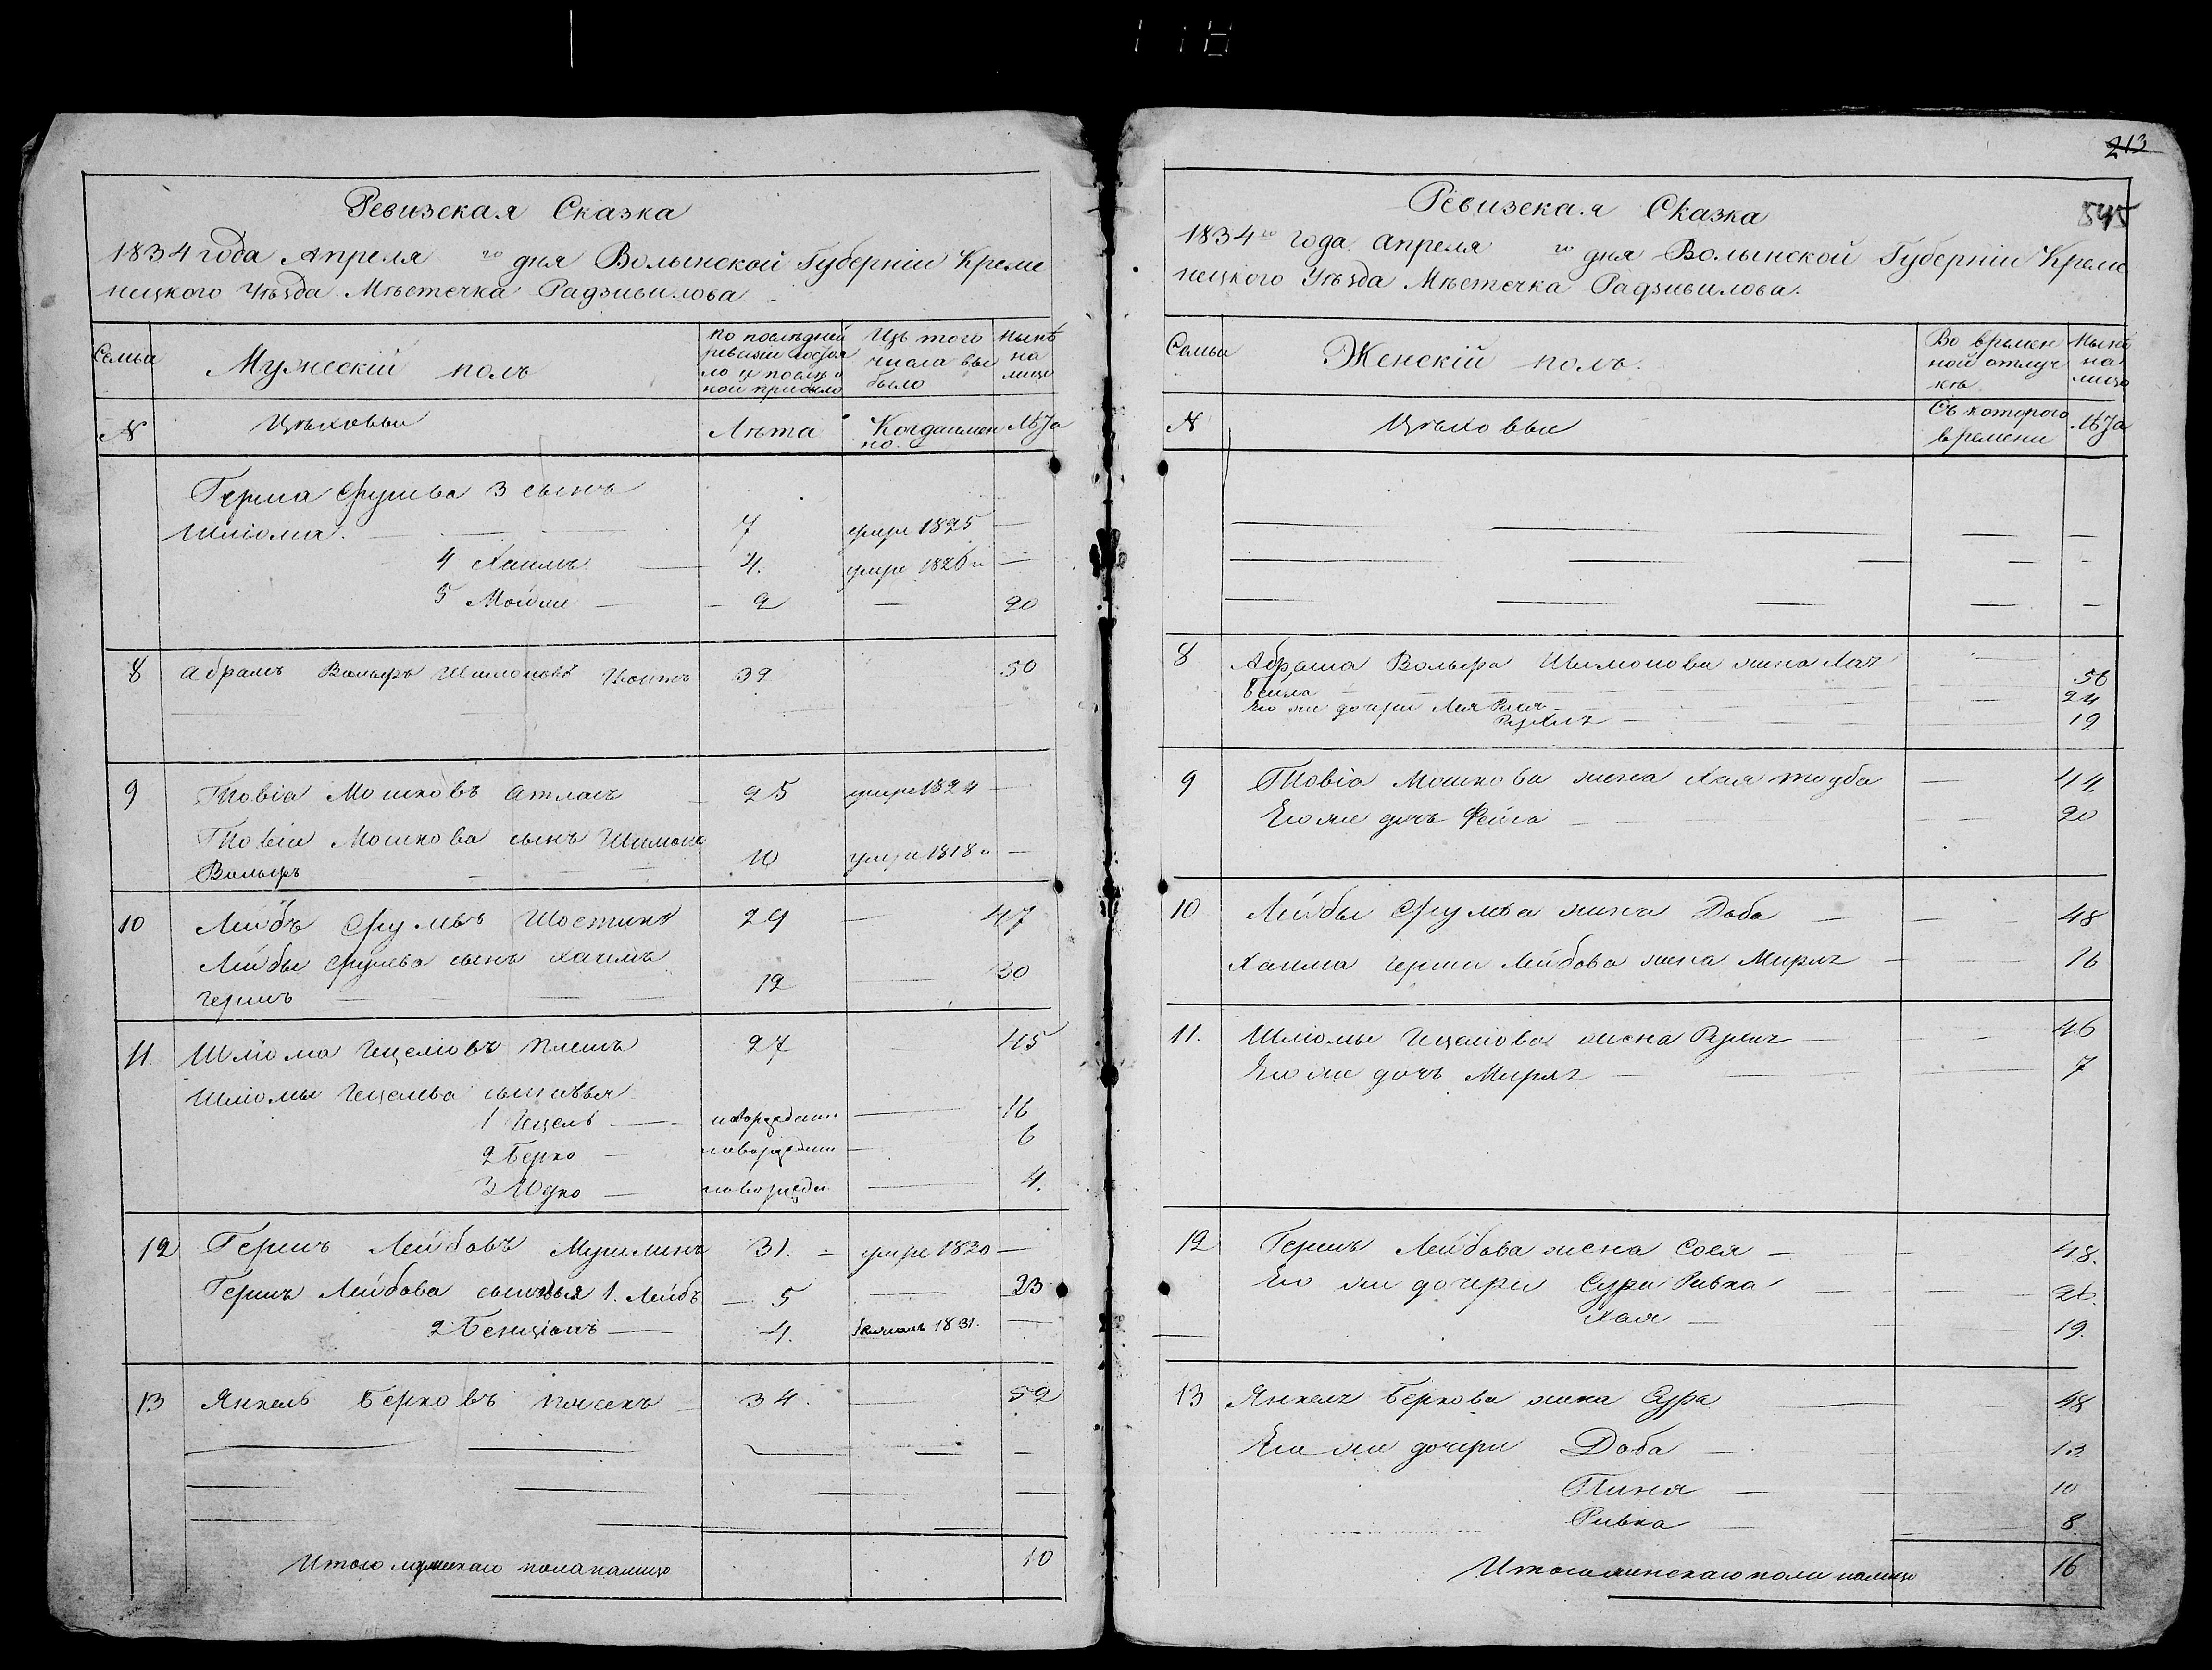 Ревизская Сказка
1834 года Апреля го дня Волынской Губернiи Креме
нецкого Уѣзда Мѣстечка Радзивилова
Семьи
Мужескiй полъ
по послѣдней
ревизiи состоя
ло и послѣ о
ной прибыло
Изъ того
числа вы
было
Нынѣ
на
лицо
N
Цѣховыи
Лѣта
Когда имен
но
Лѣта
Герша Сруля 3 сынъ
Шлiома 7 умре 1825 —
4 Хаимъ 4. умре 1826 —
5 Мошко 2 — 20
8 Абрамъ Вольфъ Шимоновъ 39 50
9 Товiа Мошковъ Атласъ 25 умре 1824 —
Товiи Мошкова сынъ Шимонъ
Вольфъ 10 умре 1818 —
10 Лейбъ Срулевъ 29 — 47
Лейбы Срулева сынъ Хаимъ
Гершъ 12 — 30
11 Шлiома Гецелiовъ 27 — 45
Шлiомы Гецелева сыновья
1 Гецель новорожден — 16
2 Берко новорожден — 6
3 Юдко новорожден — 4.
12 Гершъ Лейбовъ 31. умре 1820 —
Гершъ Лейбова сыновья 1. Лейбъ 5 — 23
2 Бенцiонъ 4. 1831. —
13 Янкель Берковъ 34. — 52
Итого мужескаго пола налицо 10
213
545
Ревизская Сказка
1834го года Апреля го дня Волынской Губернiи Креме
нецкого Уѣзда Мѣстечка Радзивилова.
Семьи
Женскiй полъ.
Во времен
ной отлуч
кѣ
Нынѣ
на
лицо
N
Цѣховыи
Съ которого
времени
Лѣта
8 Абрама Вольфа Шимонова жена
Бейла 56
Его же дочери Лея 24
19
9 Товiа Мошкова жена Хая Тауба — 44.
Его же дочь Фейга 20
10 Лейбы Срулева жена Доба — 48
Хаима Герша Лейбова жена Мирля 16
11. Шлiомы Гецелiова жена 46
Его же дочь Мирля 7
12 Гершъ Лейбова жена Сося — 48.
Его же дочери Сура Ривка 26.
Хая 19.
13 Янкеля Беркова жена Сура 48
Его же дочери Доба 13
Пиня 10
Ривка 8
Итого женскаго пола налицо 16